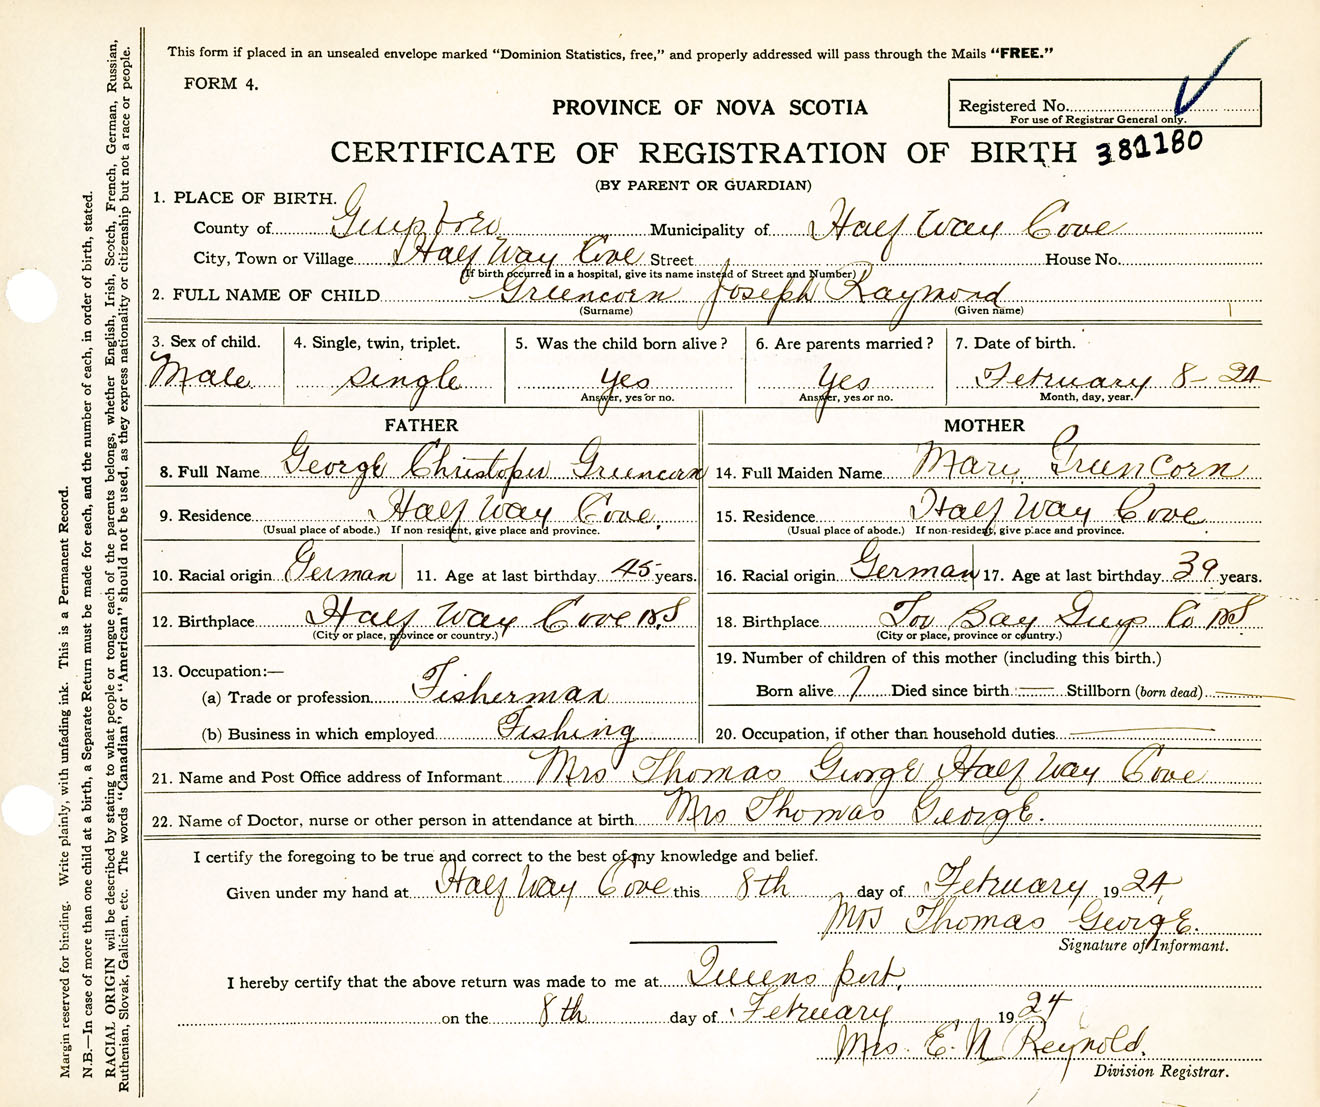 This form if placed in an unsealed envelope marked "Dominion Statistics, free," and properly addressed will pass through the Mails "FREE."
FORM 4.
PROVINCE OF NOVA SCOTIA
Registered No.
For use of Registrar General only.
CERTIFICATE OF REGISTRATION OF BIRTH 381180
(BY PARENT OR GUARDIAN)
1. PLACE OF BIRTH.
County of Guysboro Municipality of Half Way Cove
City, Town or Village Half Way Cove Street House No.
(If birth occurred in a hospital, give its name instead of Street and Number)
2. FULL NAME OF CHILD Greencorn Joseph Raymond
(Surname) (Given name)
3. Sex of child. 4. Single, twin, triplet. 5. Was the child born alive? 6. Are parents married? 7. Date of birth.
Male single yes yes February 8-24
Answer, yes or no. Answer, yes or no. Month, day, year.
FATHER MOTHER
8. Full Name George Christoper Greencorn 14. Full Maiden Name Mary Greencorn
9. Residence Half Way Cove. 15. Residence Half Way Cove
(Usual place of abode.) If non resident, give place and province. (Usual place of abode.) If non-resident, give place and province.
10. Racial origin German 11. Age at last birthday 45 years. 16. Racial origin German 17. Age at last birthday 39 years.
12. Birthplace Half Way Cove N.S 18. Birthplace Tor Bay Guys Co NS
(City or place, province or country.) (City or place, province or country.)
13. Occupation:—
(a) Trade or profession Fisherman
(b) Business in which employed Fishing
19. Number of children of this mother (including this birth.)
Born alive 7 Died since birth — Stillborn (born dead) —
20. Occupation, if other than household duties —
21. Name and Post Office address of Informant Mrs Thomas George Half Way Cove
22. Name of Doctor, nurse or other person in attendance at birth Mrs Thomas George.
I certify the foregoing to be true and correct to the best of my knowledge and belief.
Given under my hand at Half Way Cove this 8th day of February 1924
Mrs Thomas George.
Signature of Informant.
I hereby certify that the above return was made to me at Queens port.
on the 8th day of February 1924
Mrs. E. N Reynold.
Division Registrar.
Margin reserved for binding. Write plainly, with unfading ink. This is a Permanent Record.
N.B.—In case of more than one child at a birth, a Separate Return must be made for each, and the number of each, in order of birth, stated.
RACIAL ORIGIN will be described by stating to what people or tongue each of the parents belongs, whether English, Irish, Scotch, French, German, Russian,
Ruthenian, Slovak, Galician, etc. The words "Canadian" or "American" should not be used, as they express nationality or citizenship but not a race or people.